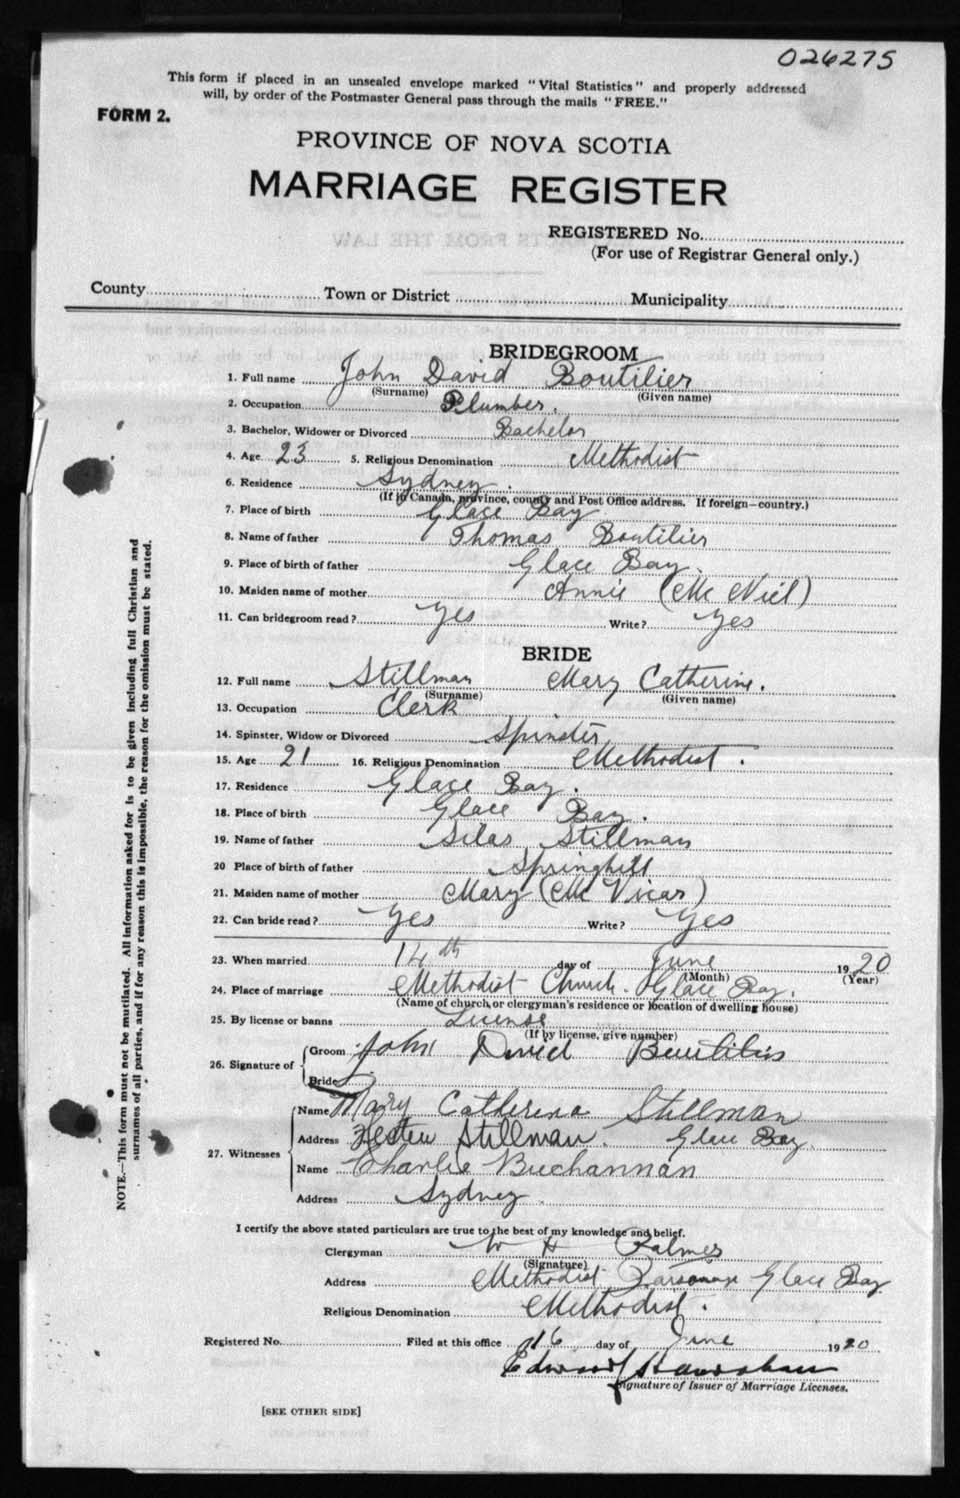 026275
This form if placed in an unsealed envelope marked "Vital Statistics" and properly addressed
will, by order of the Postmaster General pass through the mails "FREE."
FORM 2.
PROVINCE OF NOVA SCOTIA
MARRIAGE REGISTER
REGISTERED No.
(For use of Registrar General only.)
County Town or District Municipality
BRIDEGROOM
1. Full name John David Boutilier
(Surname) (Given name)
2. Occupation Plumber.
3. Bachelor, Widower or Divorced Bachelor
4. Age 23 5. Religious Denomination Methodist
6. Residence Sydney.
(If in Canada, province, county and Post Office address. If foreign—country.)
7. Place of birth Glace Bay
8. Name of father Thomas Boutilier
9. Place of birth of father Glace Bay.
10. Maiden name of mother Annie (Mc Niel)
11. Can bridegroom read? Yes Write? Yes
BRIDE
12. Full name Stillman Mary Catherine.
(Surname) (Given name)
13. Occupation Clerk
14. Spinster, Widow or Divorced Spinster
15. Age 21 16. Religious Denomination Methodist.
17. Residence Glace Bay.
18. Place of birth Glace Bay.
19. Name of father Silas Stillman
20 Place of birth of father Springhill
21. Maiden name of mother Mary (Mc Vicar)
22. Can bride read? Yes Write? Yes
23. When married 14th day of June 1920
(Month) (Year)
24. Place of marriage Methodist Church. Glace Bay.
(Name of church, or clergyman's residence or location of dwelling house)
25. By license or banns License
(If by license, give number)
26. Signature of
Groom John David Boutilier
Bride
27. Witnesses
Name Mary Catherine Stillman
Address Stillman. Glace Bay.
Name Charlie Buchannan
Address Sydney.
I certify the above stated particulars are true to the best of my knowledge and belief.
Clergyman W H Palmer
(Signature)
Address Methodist Parsonage Glace Bay
Religious Denomination Methodist.
Registered No. Filed at this office 16 day of June 1920
Edward
Signature of Issuer of Marriage Licenses.
[SEE OTHER SIDE]
NOTE.—This form must not be mutilated. All information asked for is to be given including full Christian and
surnames of all parties, and if for any reason this is impossible, the reason for the omission must be stated.